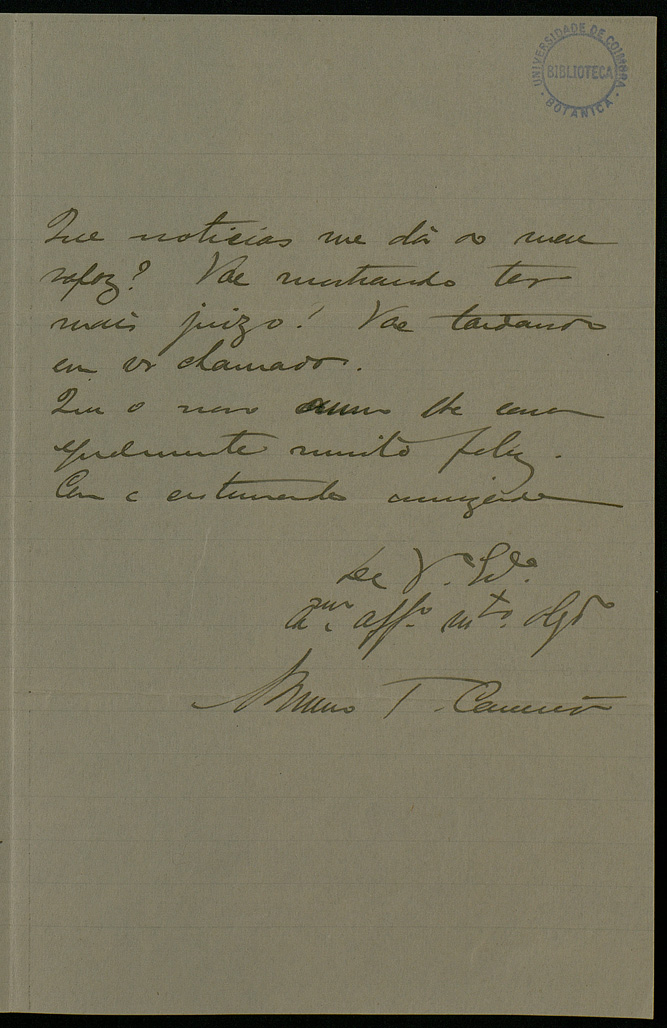 UNIVERSIDADE DE COIMBRA
BIBLIOTECA
BOTANICA
Que noticias me dá do meu
rapaz? Vae mostrando ter
mais juizo? Vae tardando
em ser chamado.
Que o novo anno lhe corra
egualmente muito feliz.
Com a costumada amizade
De V. Ex.ª
Am.º aff.º m.to obgdo
Bruno T. Carreiro